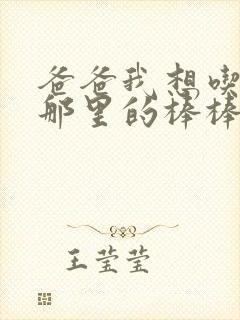 爸爸我想喫
那里的棒棒
王莹莹